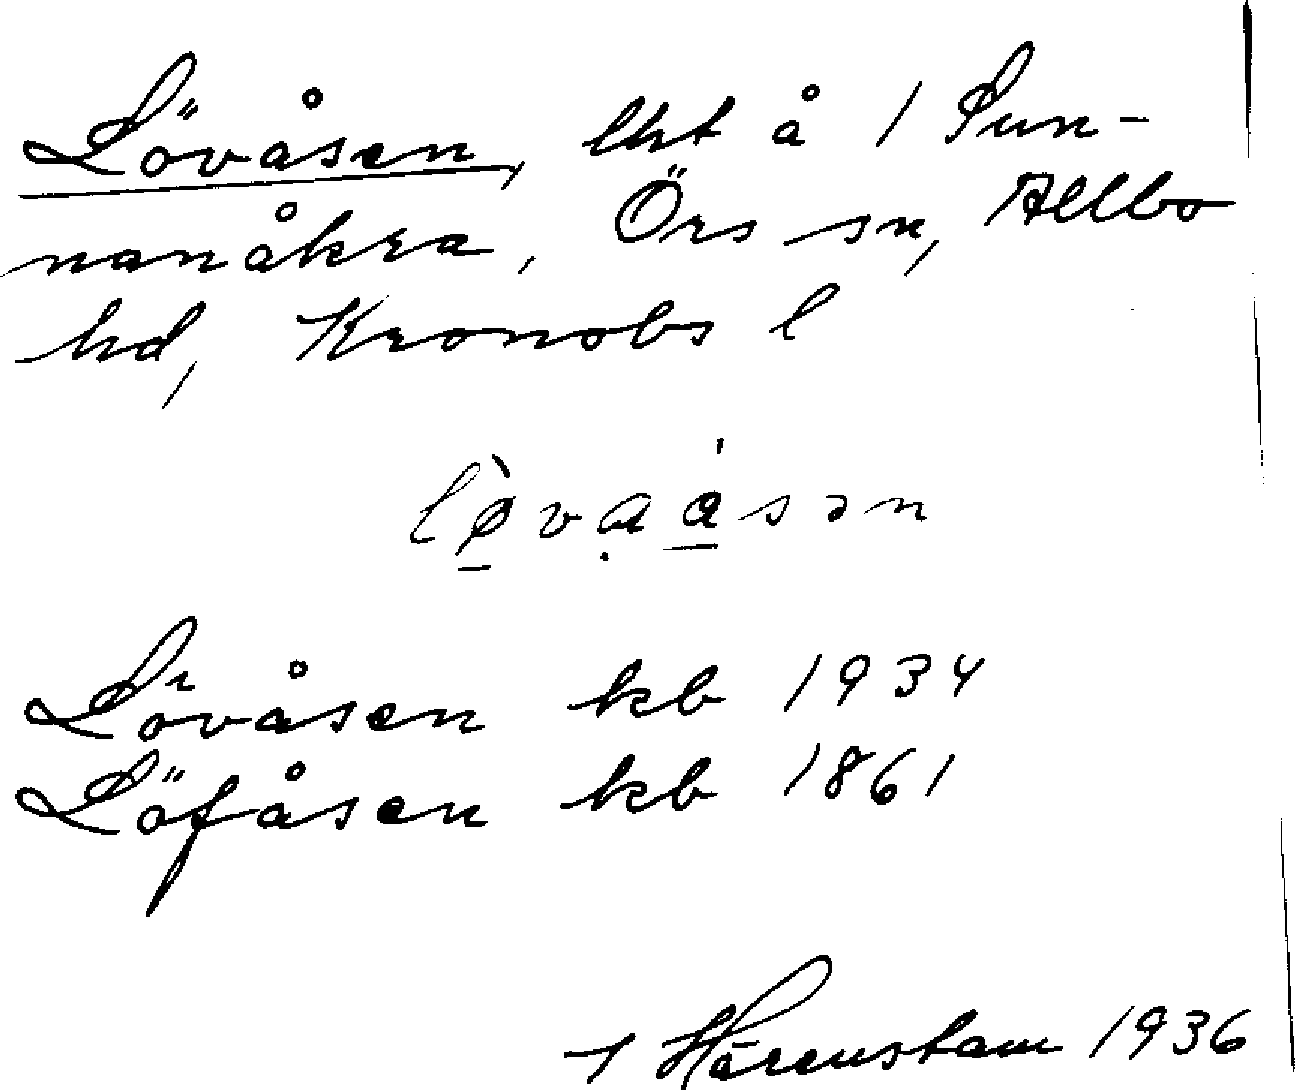 Lövåsen, lht å 1 Sun-
nanåkra, Örs sn, Allbo
hd, Kronobs l
Lövåsen kb 1934
Löfåsen kb 1861
Härenstam 1936